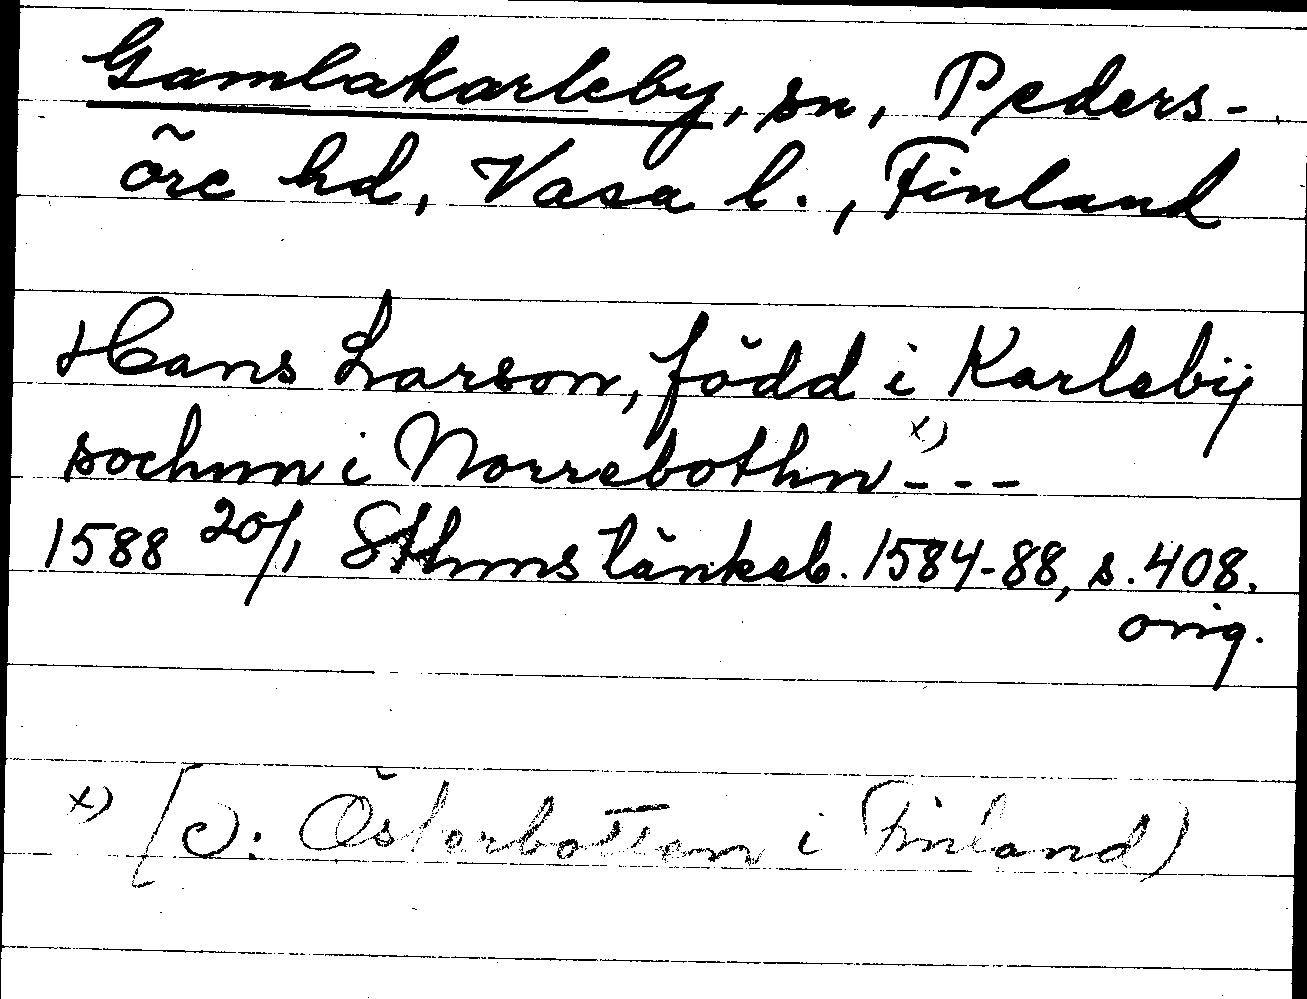 Gamlakarleby, sn, Peders-
öre hd, Vasa l., Finland
Hans Larson, född i Karlebij
sochnn i Norrebothn x) ---
1588 20/1 Sthms tänkeb. 1584-88, s. 408.
orig.
x) [ɔ: Österbotten i Finland)